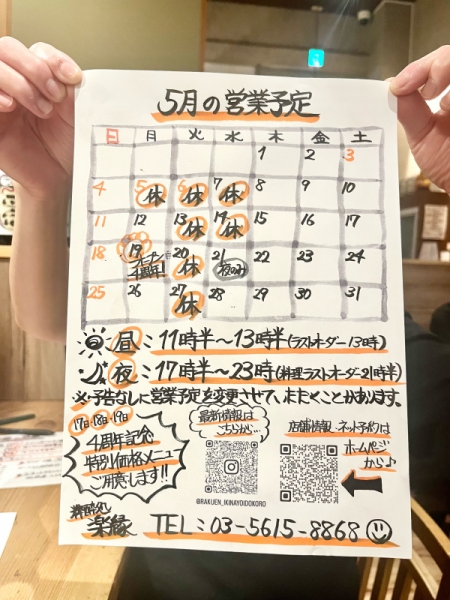 5月の営業予定
日 月 火 水 木 金 土
1 2 3
4 5休 6休 7休 8 9 10
11 12 13休 14休 15 16 17
18 19 20休 21夜のみ 22 23 24
4周年!
25 26 27休 28 29 30 31
昼:11時半〜13時半(ラストオーダー13時)
夜:17時半〜23時(料理ラストオーダー21時半)
※予告なしに営業予定を変更させていただくことがあります。
17日・18日・19日
4周年記念
特別価格メニュー
ご用意します!!
最新情報は
こちらから…
@RAKUEN_IKINAYOIDOKORO
店舗情報・ネット予約は
ホームページ
から♪
楽縁
TEL:03-5615-8868